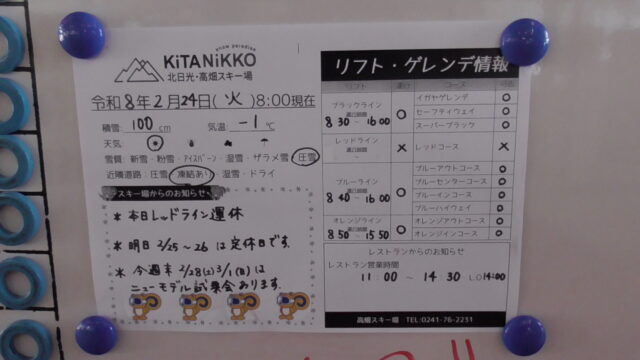 snow paradise
KiTANiKKO
北日光・高畑スキー場
令和8年2月24日(火)8:00現在
積雪: 100cm 気温: -1℃
天気:
雪質 新雪・粉雪・アイスバーン・湿雪・ザラメ雪 圧雪
近隣道路: 圧雪 凍結あり 湿雪・ドライ
スキー場からのお知らせ
* 本日レッドライン運休
* 明日 2/25〜26 は定休日です
* 今週末 2/28(土)3/1(日)は
ニューモデル試乗会あります
リフト・ゲレンデ情報
リフト 運行 コース 可否
ブラックライン
運行時間
8 30 〜 16 00 ○
イガヤゲレンデ ○
セーフティウェイ ○
スーパーブラック ○
レッドライン
運行時間
〜 ×
レッドコース ×
ブルーライン
運行時間
8 40 〜 16 00 ○
ブルーアウトコース ○
ブルーセンターコース ○
ブルーインコース ○
ブルーハイウェイ ○
オレンジライン
運行時間
8 50 〜 15 50 ○
オレンジアウトコース ○
オレンジインコース ○
レストランからのお知らせ
レストラン営業時間
11 00 〜 14 30 LO14:00
高畑スキー場 TEL:0241-76-2231